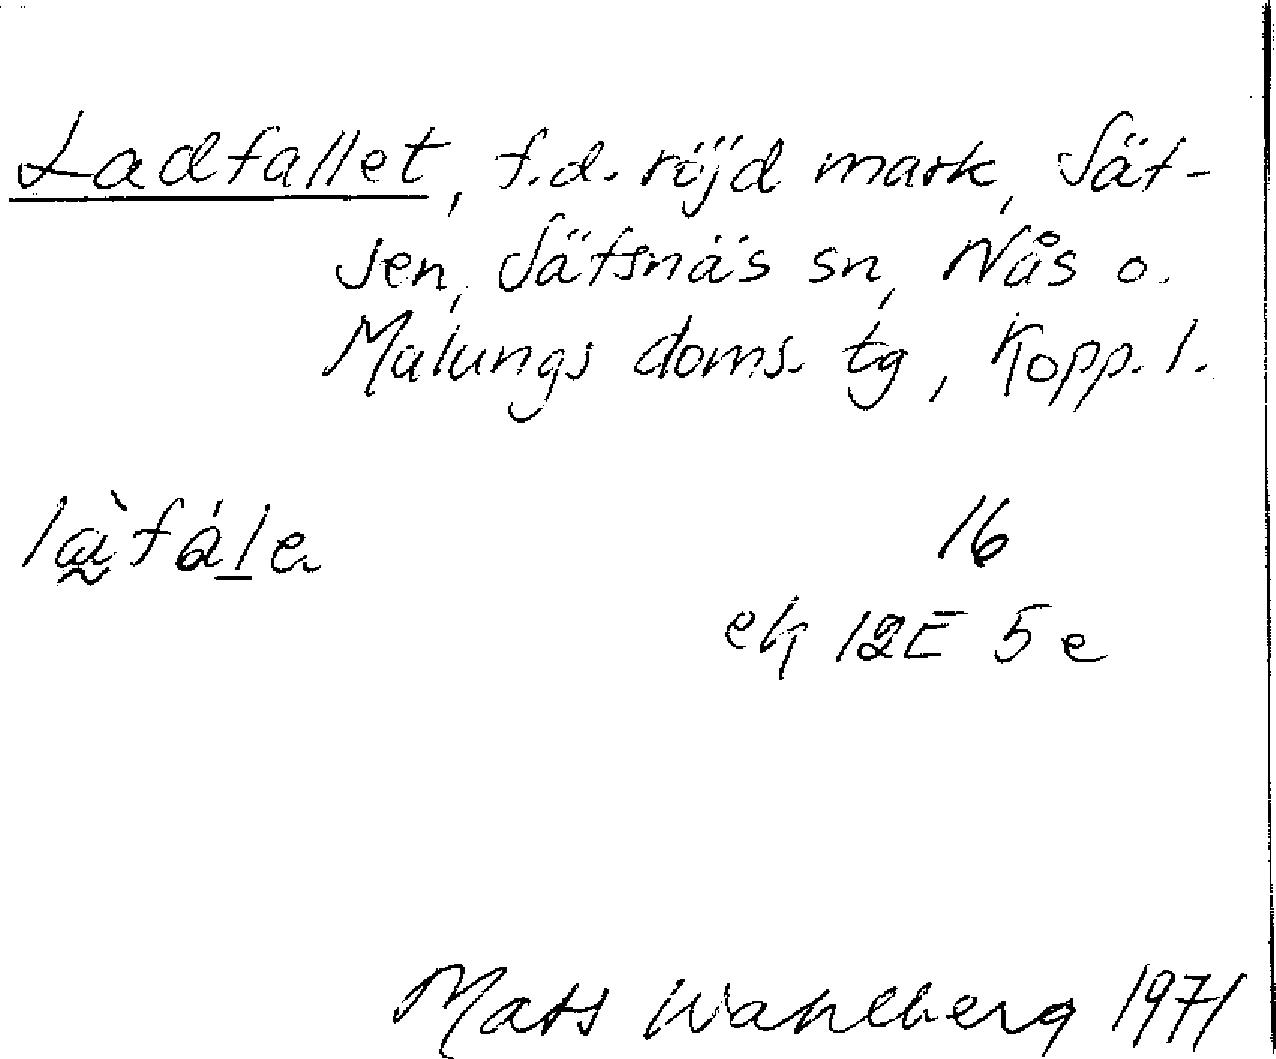 Ladfallet, f.d. röjd mark, Sät-
sen, Sätsnäs sn, Nås o.
Malungs doms. tg, Kopp. l.
16
ek 12E 5e
Mats Wahlberg 1971